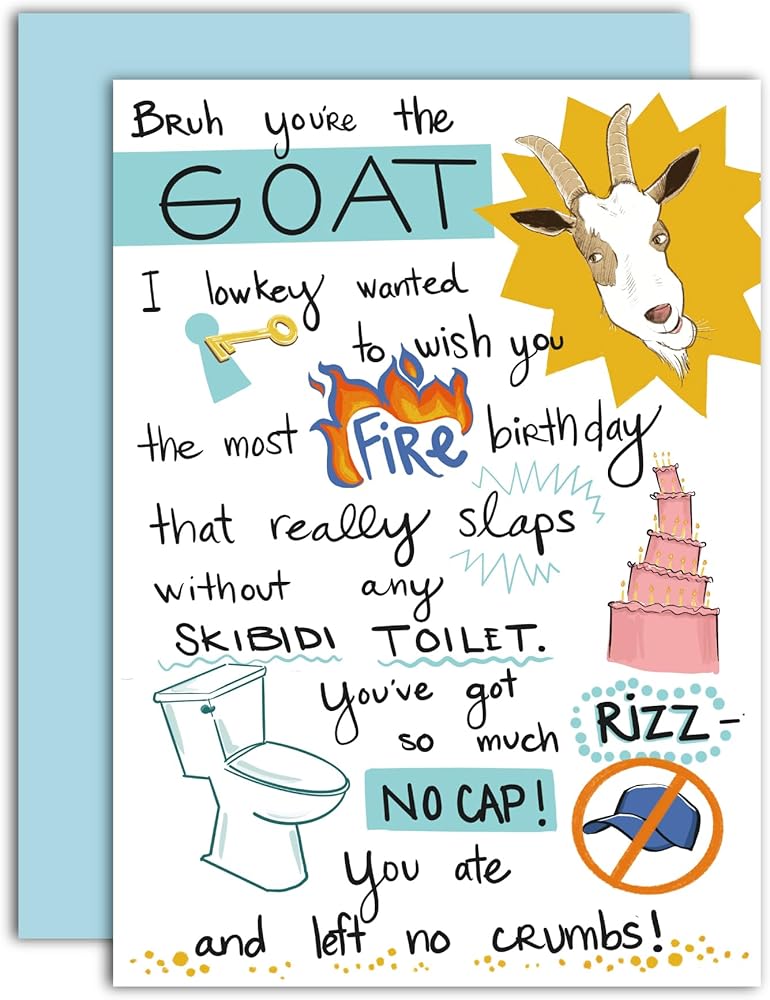 Bruh you're the
GOAT
I lowkey wanted
to wish you
the most FiRe birthday
that really slaps
without any
SKIBIDI TOILET.
You've got
so much RiZZ-
NO CAP!
You ate
and left no crumbs!